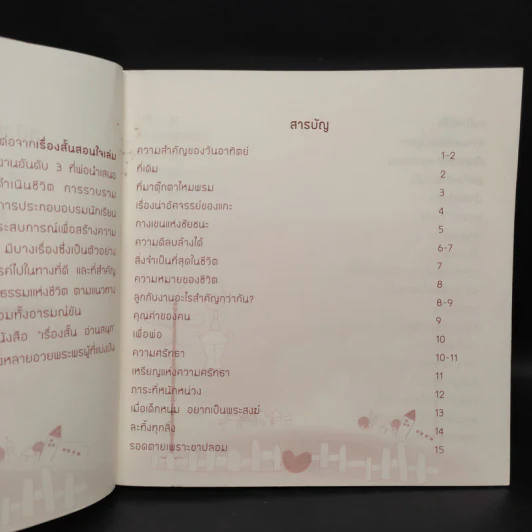 ต่อจากเรื่องสั้นสอนใจเล่ม
งานอันดับ 3 ที่พ่อนำเสนอ
ดำเนินชีวิต การรวบรวม
การประกอบอบรมนักเรียน
ระสบการณ์เพื่อสร้างความ
มีบางเรื่องซึ่งเป็นตัวอย่าง
รค์ไปในทางที่ดี และที่สำคัญ
ธรรมแห่งชีวิต ตามแนวทาง
วมทั้งอารมณ์ขัน
นังสือ "เรื่องสั้น อ่านสนุก"
งหลายอวยพระพรผู้ที่แบ่งปัน
สารบัญ
ความสำคัญของวันอาทิตย์ 1-2
ที่เดิม 2
ที่มาตุ๊กตาไหมพรม 3
เรื่องน่าอัศจรรย์ของแกะ 4
กางเขนแห่งชัยชนะ 5
ความดีลบล้างได้ 6-7
สิ่งจำเป็นที่สุดในชีวิต 7
ความหมายของชีวิต 8
ลูกกับงานอะไรสำคัญกว่ากัน? 8-9
คุณค่าของคน 9
เพื่อพ่อ 10
ความศรัทธา 10-11
เหรียญแห่งความศรัทธา 11
ภาระที่หนักหน่วง 12
เมื่อเด็กหนุ่ม อยากเป็นพระสงฆ์ 13
ละทิ้งทุกสิ่ง 14
รอดตายเพราะขาปลอม 15